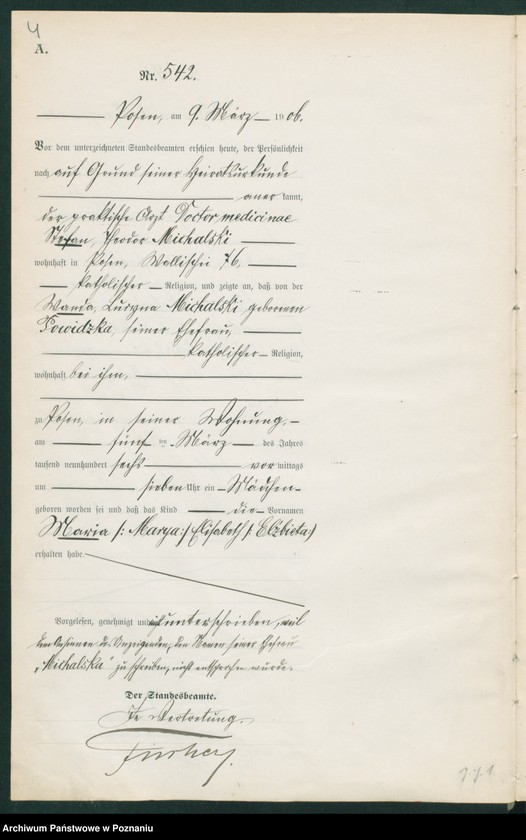 4
A.
Nr. 542.
Posen, am 9. März 1906.
Vor dem unterzeichneten Standesbeamten erschien heute, der Persönlichkeit
nach auf Grund seiner Heiratsurkunde
aner kannt,
der praktische Arzt Doctor medicinae
Stefan, Theodor Michalski
wohnhaft in Posen, Wallischei 76,
katholischer Religion, und zeigte an, daß von der
Wanda, Michalski geborenen
Powidzka, seiner Ehefrau,
katholischer Religion,
wohnhaft bei ihm,
zu Posen, in seiner Wohnung,
am fünf ten März des Jahres
tausend neunhundert sechs vor mittags
um sieben Uhr ein Mädchen
geboren worden sei und daß das Kind die Vornamen
Maria /: Marya :/ Elisabeth /: Elzbieta :/
erhalten habe.
Vorgelesen, genehmigt und nicht unterschrieben, weil
dem Ansinnen des Anzeigenden, den Namen seiner Ehefrau
„Michalska" zu schreiben, nicht entsprochen wurde.
Der Standesbeamte.
In Vertretung.
Archiwum Państwowe w Poznaniu